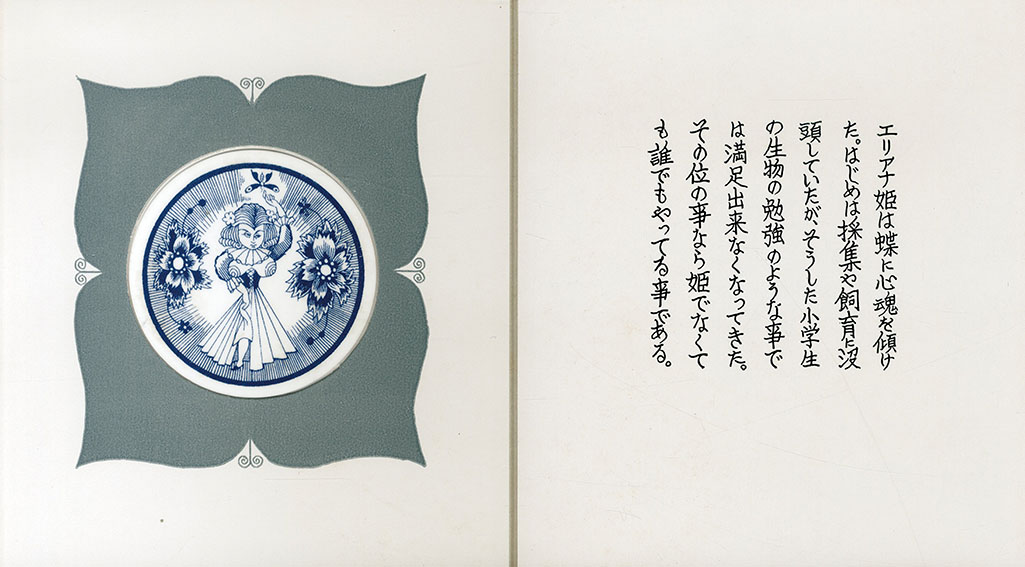 エリアナ姫は蝶に心魂を傾け
た。はじめは採集や飼育に没
頭していたが、そうした小学生
の生物の勉強のような事で
は満足出来なくなってきた。
その位の事なら姫でなくて
も誰でもやってる事である。